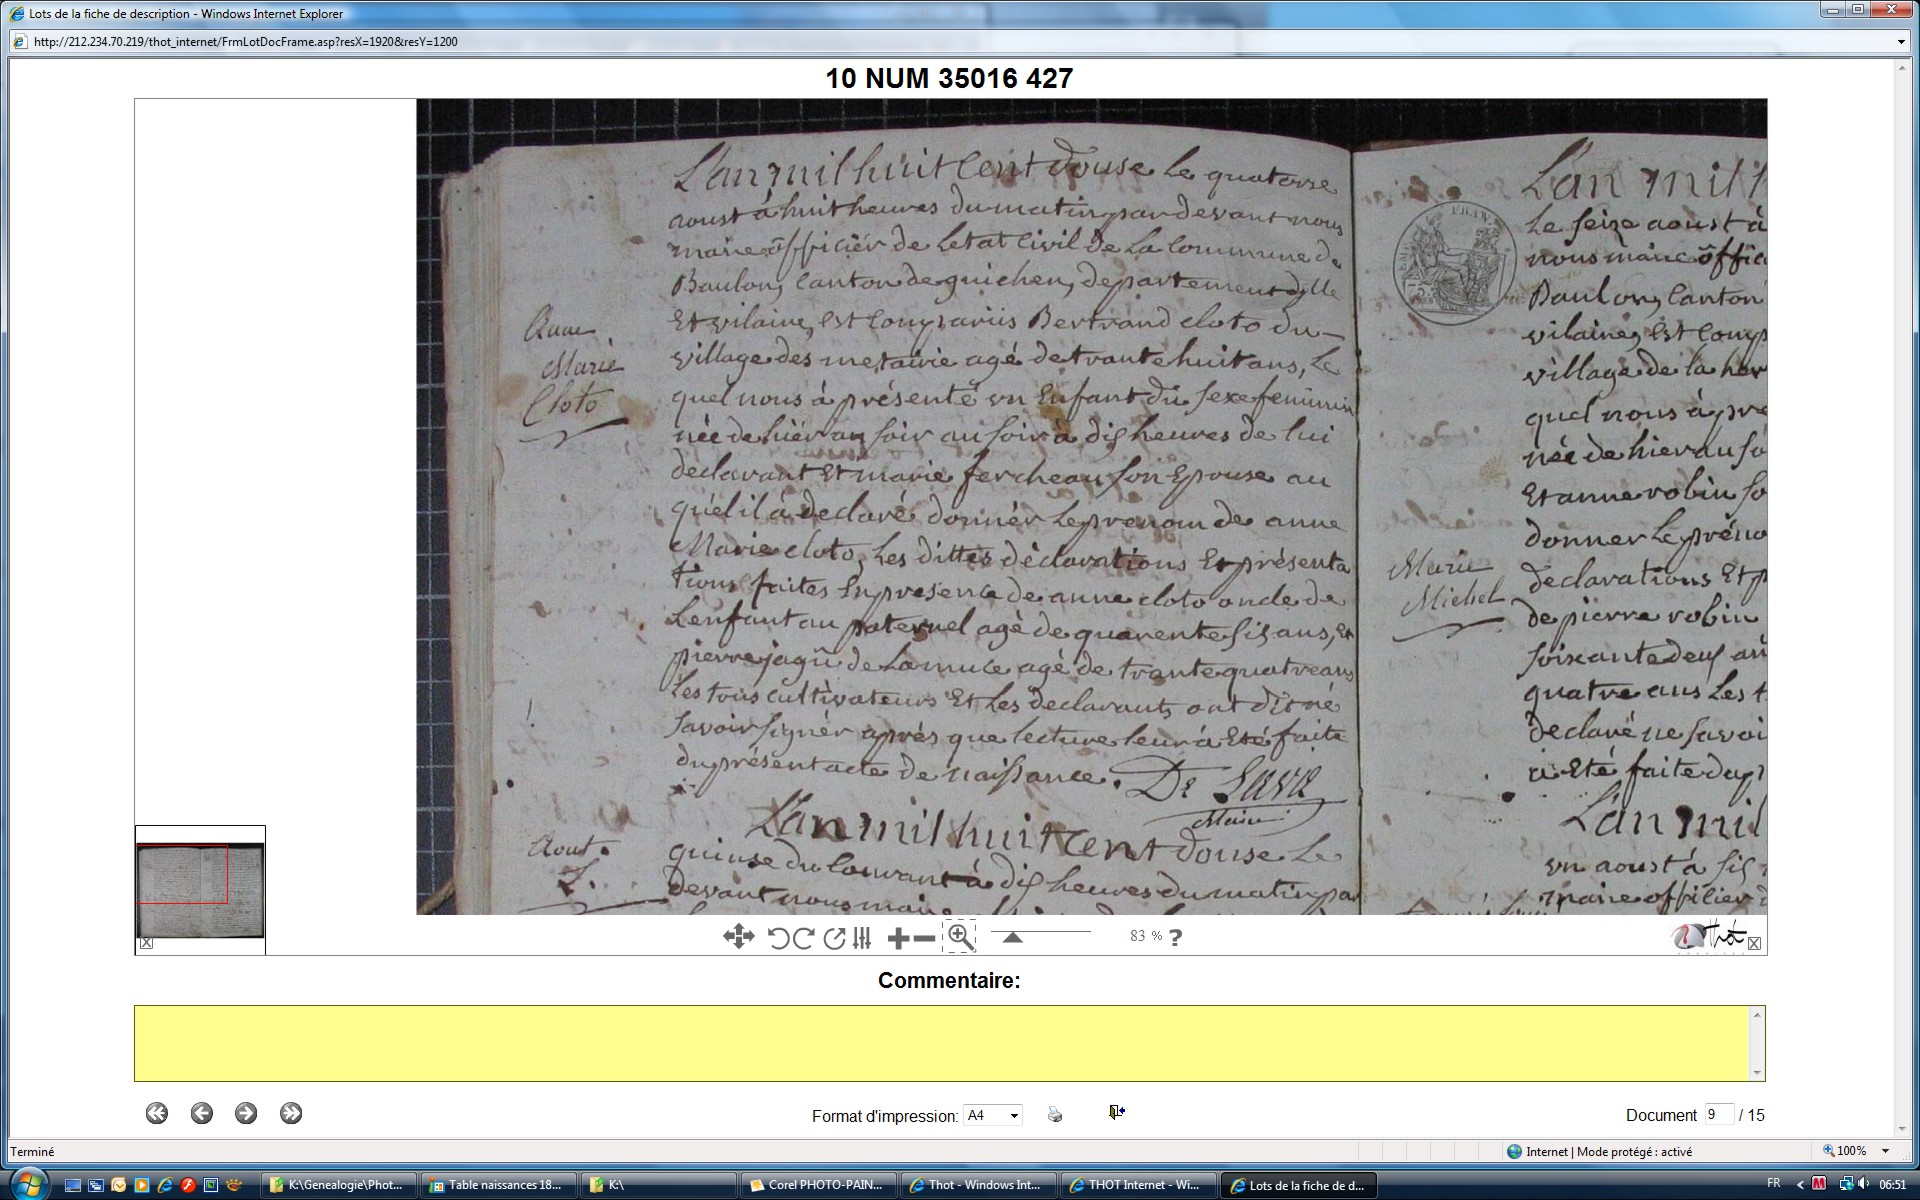 Lots de la fiche de description - Windows Internet Explorer
http://212.234.70.219/thot_internet/FrmLotDocFrame.asp?resX=1920&resY=1200
10 NUM 35016 427
L'an mil huit Cent douse Le quatorse
aoust à huit heures du matin par devant nous
maire officiér de Letat Civil de La Commune de
Baulon, Canton de guichen, departement dille
Et vilaine, Est Comparüs Bertrand cloto du
village des metairie agé de trante huit ans, Le
quel nous à présenté un Enfant du sexe feminin
née de hiér au soir au soir à dix heures de lui
declarant Et marie fercheau son Epouse au
quel il à declaré donnér Le prenom de anne
Marie cloto, Les dittes déclarations Et présenta
tions faites En presence de anne cloto oncle de
Lenfant au paternel agé de quarente six ans, Et
pierre jagu de La muce agé de trante quatre ans
Les tous cultivateurs Et Les declarants ont dit né
Savoir signér après que lecture leur à Eté faite
du présent acte de naissance. De Lava
Maire
Anne
Marie
Cloto
L'an mil huit Cent douse Le
quinse du Courant à dix heures du matin par
devant nous maire
Aout
L'an mil h
Le seize aoust à
nous maire offic
Baulon, Canton
vilaine, Est Comp
village de la
quel nous à pre
née de hier au so
Et anne robin so
donner Le préno
declarations Et p
de pierre robin
soixante deux an
quatre ans Les t
declaré ne savoi
à Eté faite du p
Marie
Michel
L'an mil
un aoust à six
maire officier d
FRAN
Thot
83 % ?
Commentaire:
Format d'impression: A4
Document 9 / 15
Terminé
Internet | Mode protégé : activé
100%
K:\Genealogie\Phot...
Table naissances 18...
K:\
Corel PHOTO-PAIN...
Thot - Windows Int...
THOT Internet - Wi...
Lots de la fiche de d...
FR
06:51